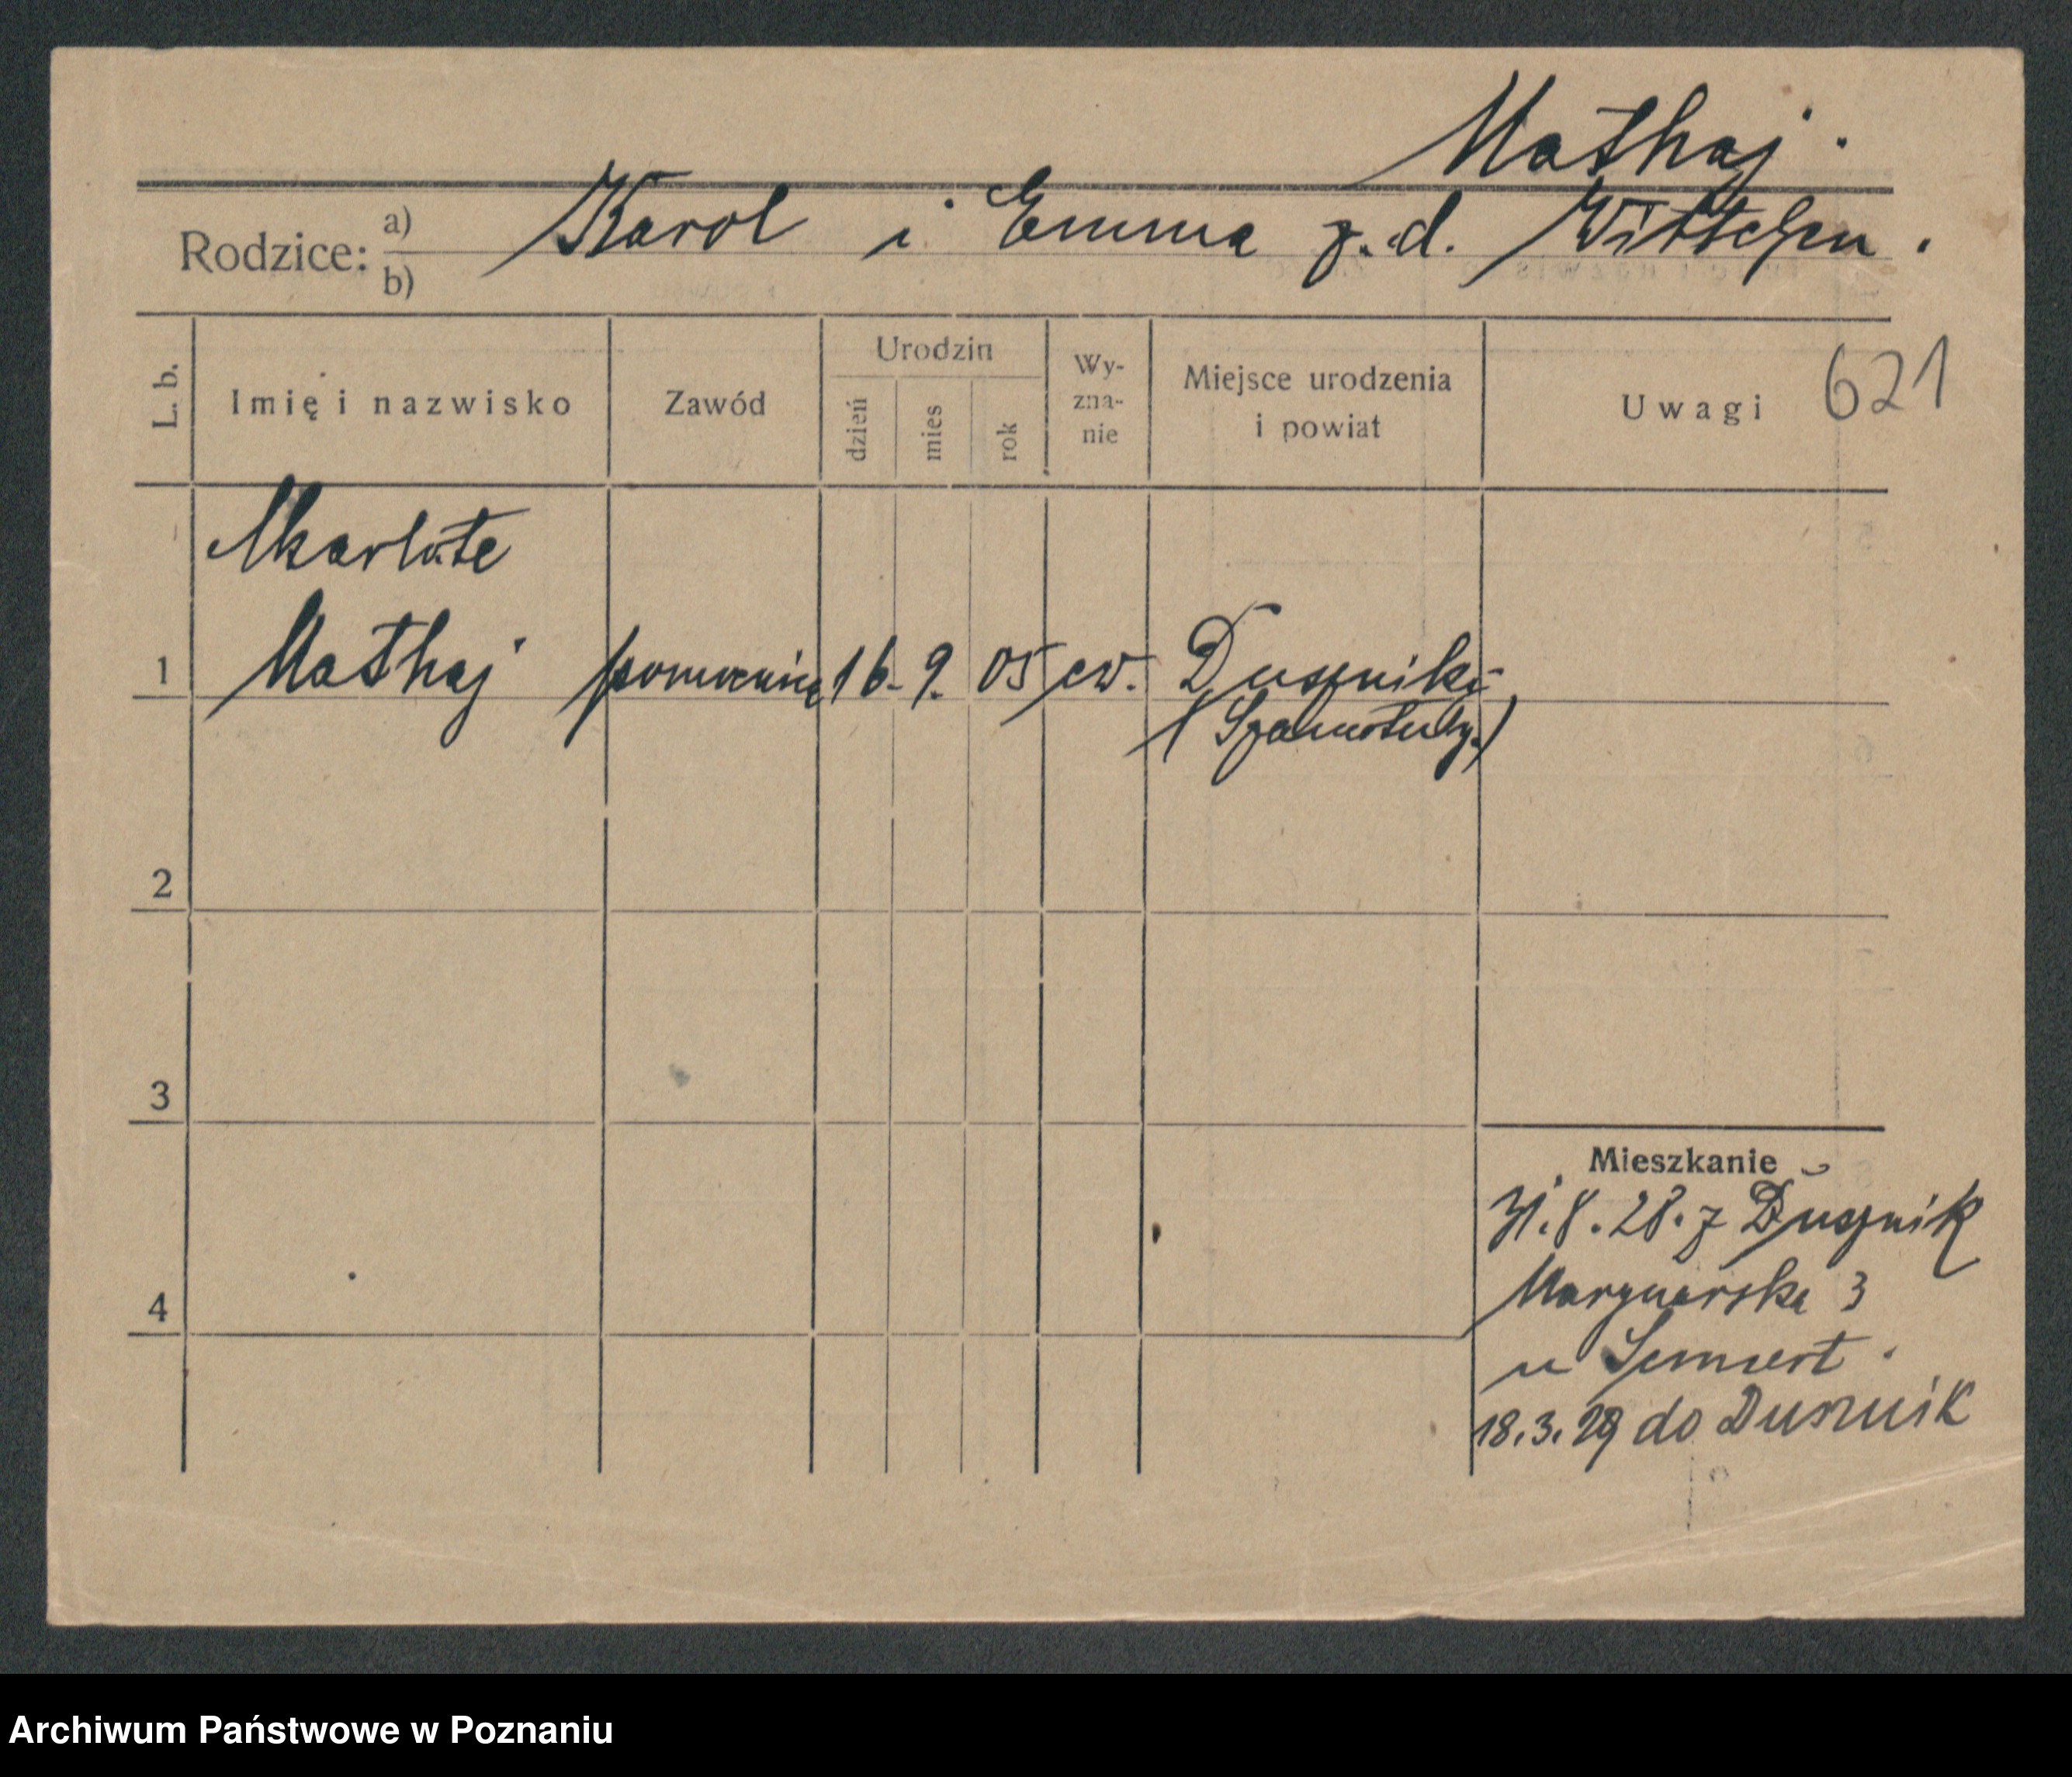 Mathaj.
Rodzice: a) b) Karol i Emma z. d. Wittchen.
L. b. Imię i nazwisko Zawód Urodzin dzień mies rok Wy-zna-nie Miejsce urodzenia i powiat Uwagi 621
Charlote
1 Mathaj pomocnica 16. 9. 05 ew. Duszniki
(Szamotuły.)
2
3
Mieszkanie
31. 8. 28. z Dusznik
4 Marynarska 3
u
18. 3. 29 do Dusznik
Archiwum Państwowe w Poznaniu